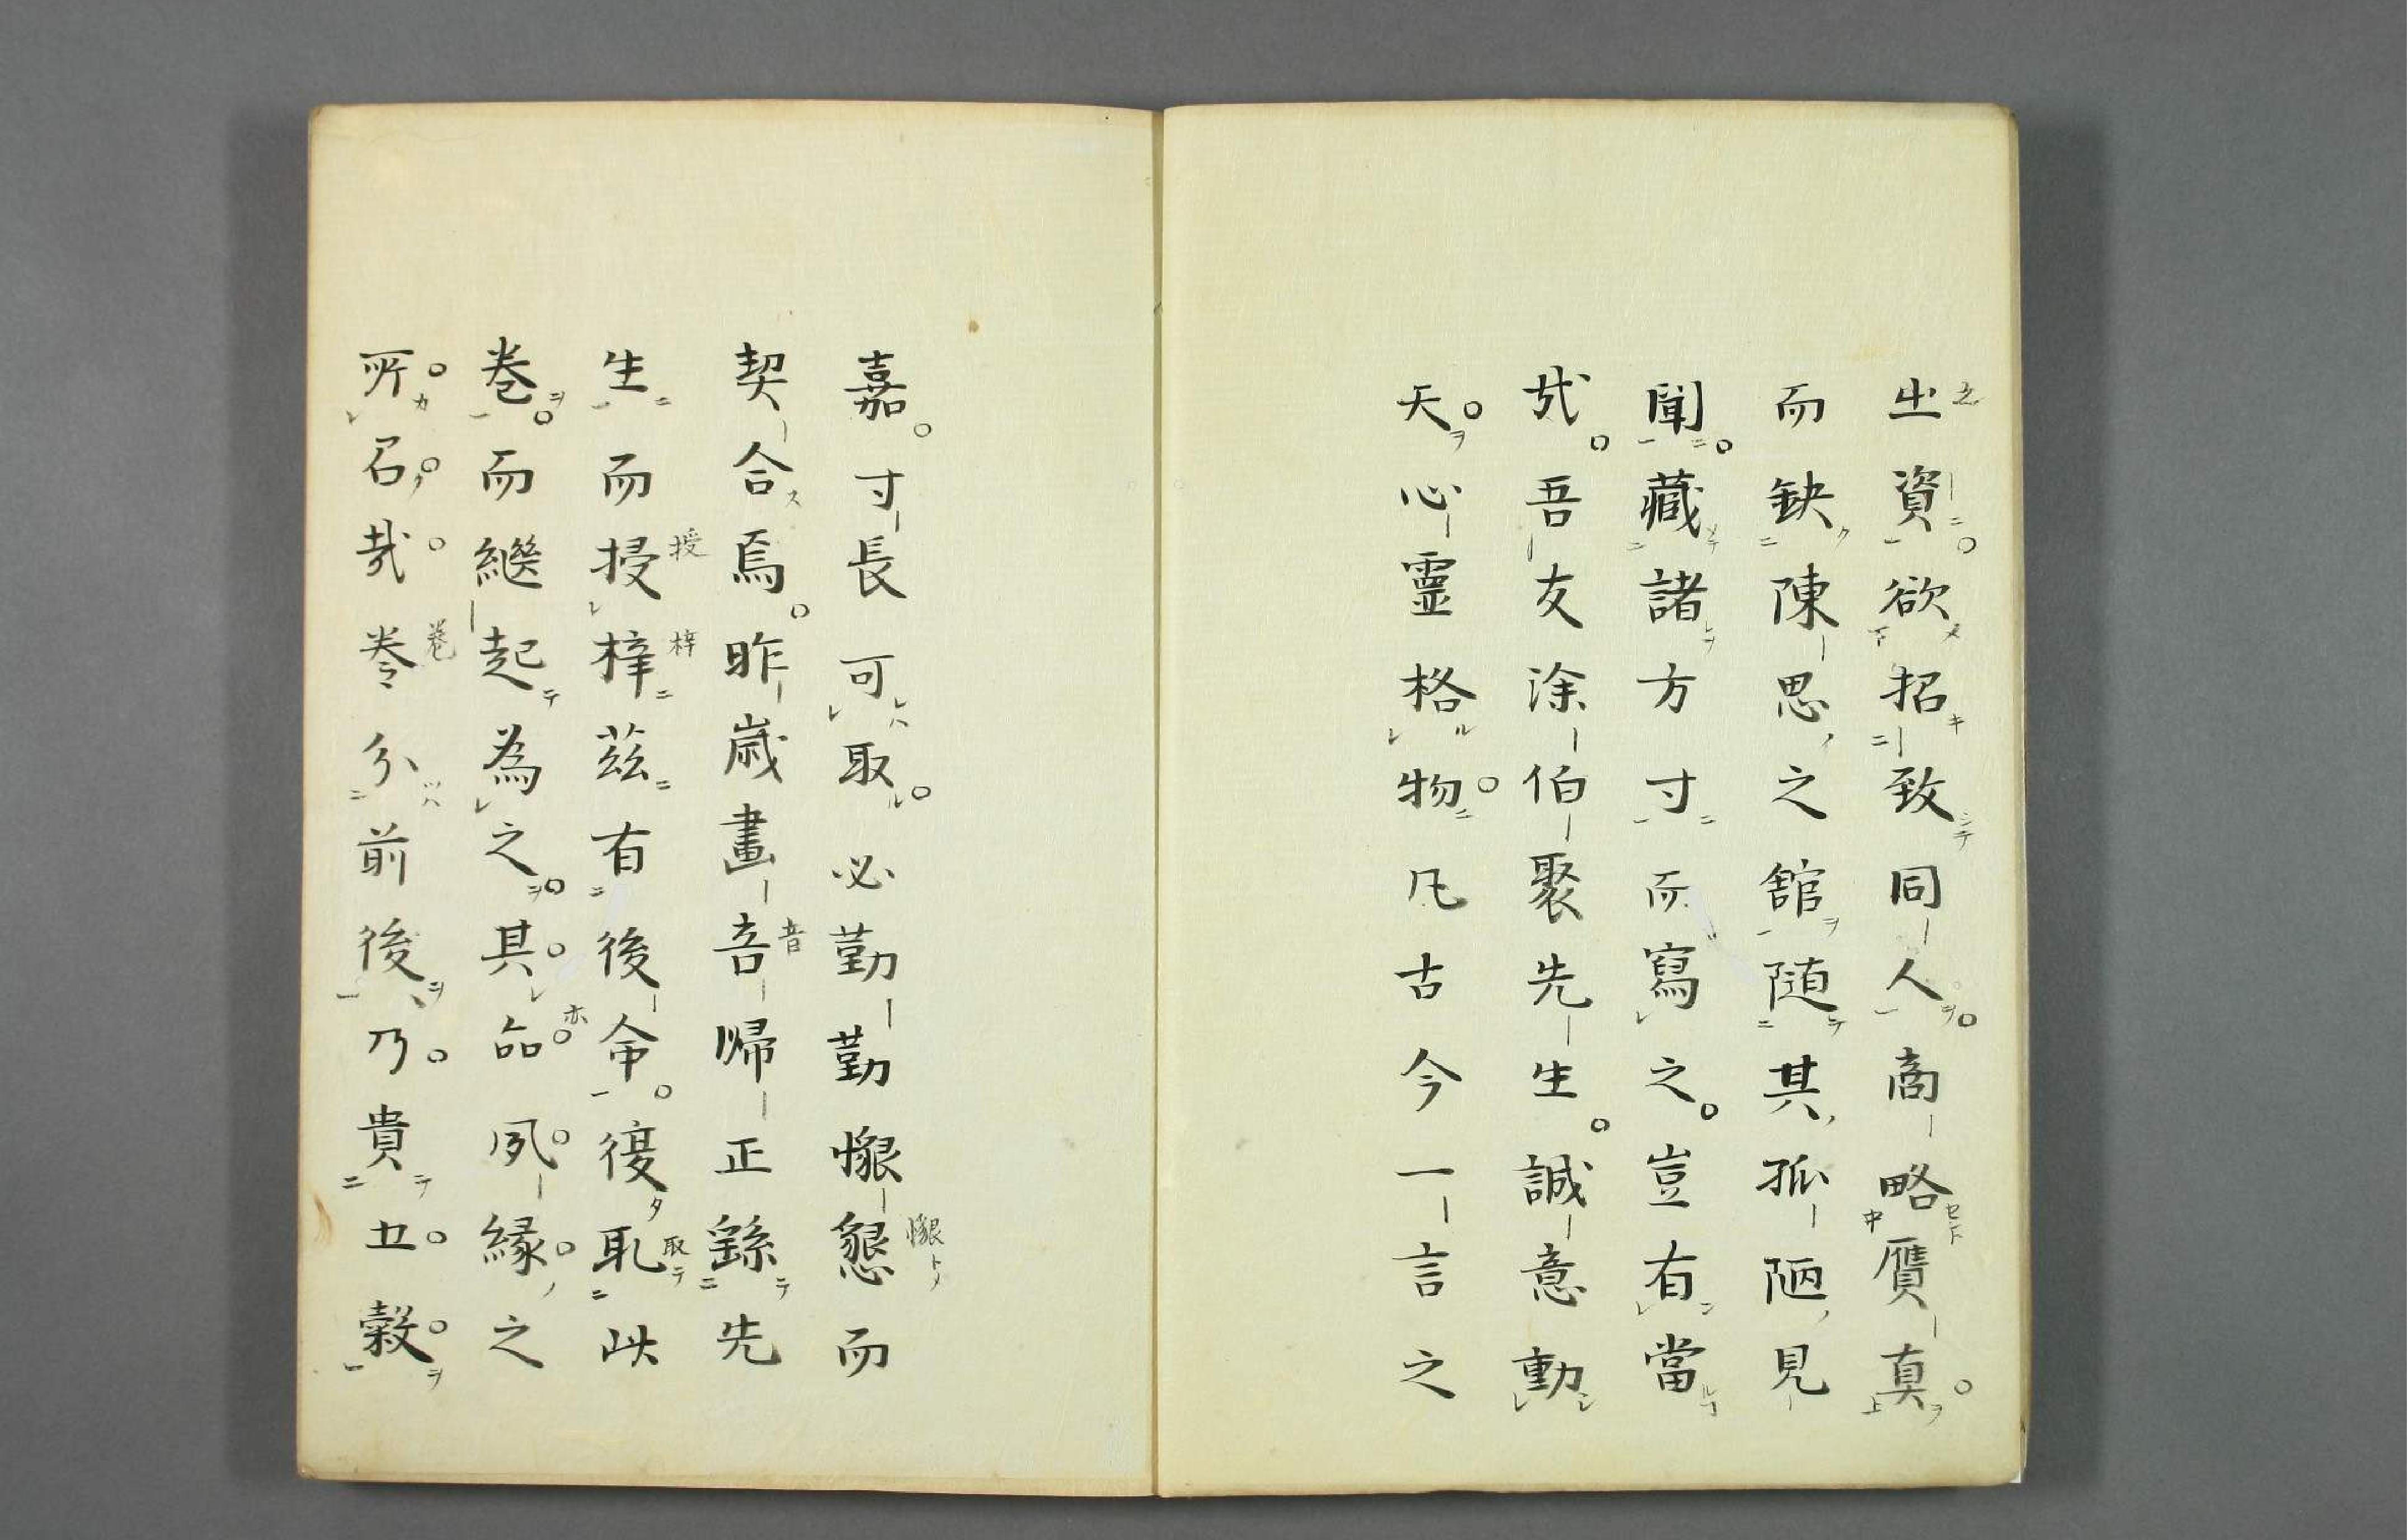 㞢資欲招致同人商略贋真
而缺陳思之館随其孤陋見
聞藏諸方寸而寫之豈有當
㢤吾友涂伯聚先生誠意動
天心靈格物凡古今一言之
嘉寸長可取必勤勤懇懇而
契合焉昨歳畫音歸正繇先
生而授梓茲有後命復取此
巻而繼起為之其品夙縁之
所召㢤巻分前後乃貴五穀